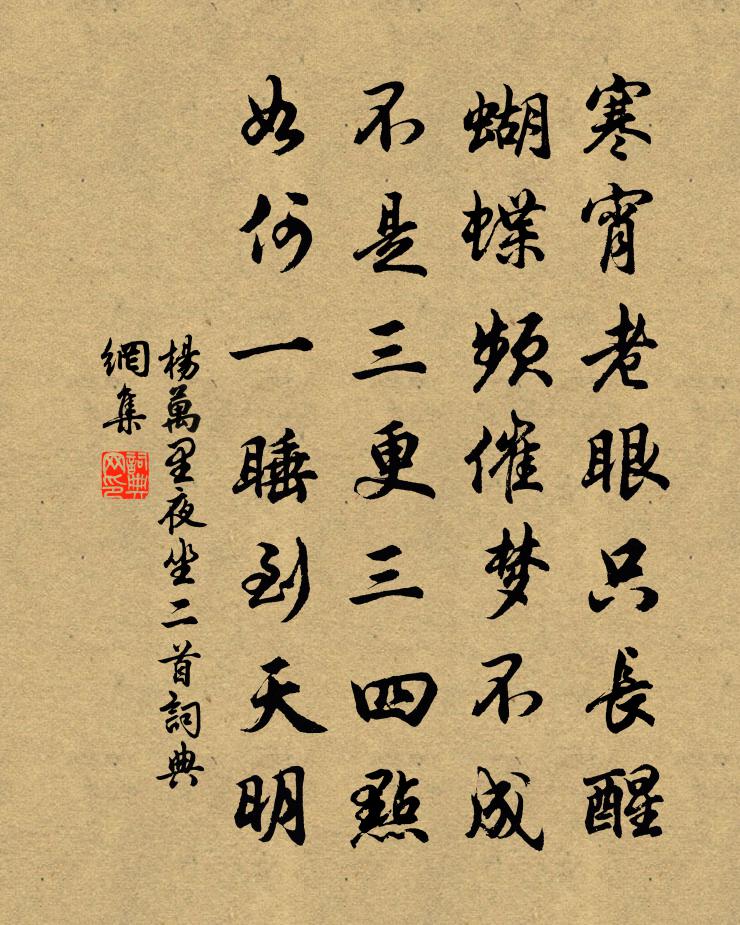 寒宵老眼只長醒
蝴蝶頻催梦不成
不是三更三四點
如何一睡到天明
楊萬里夜坐二首詞典
網集
詞典网印